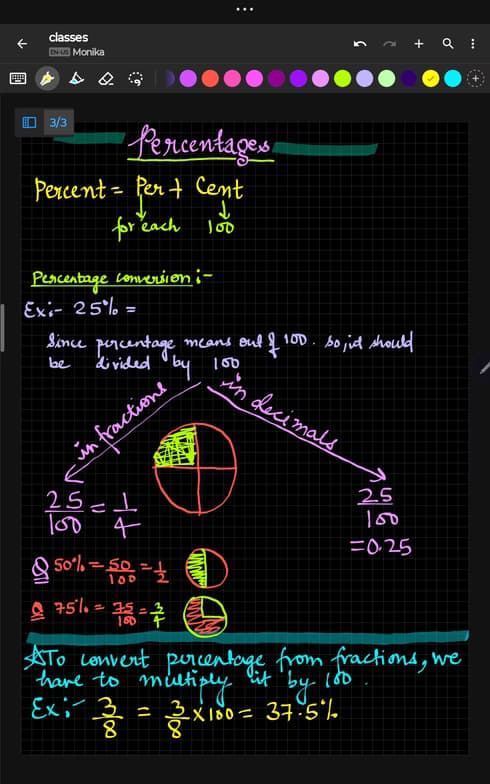 classes
EN-US Monika
3/3
Percentages
Percent = Per + Cent
for each 100
Percentage conversion :-
Ex:- 25% =
Since percentage means out of 100. So, it should
be divided by 100
in fractions
in decimals
25/100 = 1/4
25/100
=0.25
Q 50% = 50/100 = 1/2
Q 75% = 75/100 = 3/4
To convert percentage from fractions, we
have to multiply it by 100.
Ex:- 3/8 = 3/8 x 100 = 37.5%